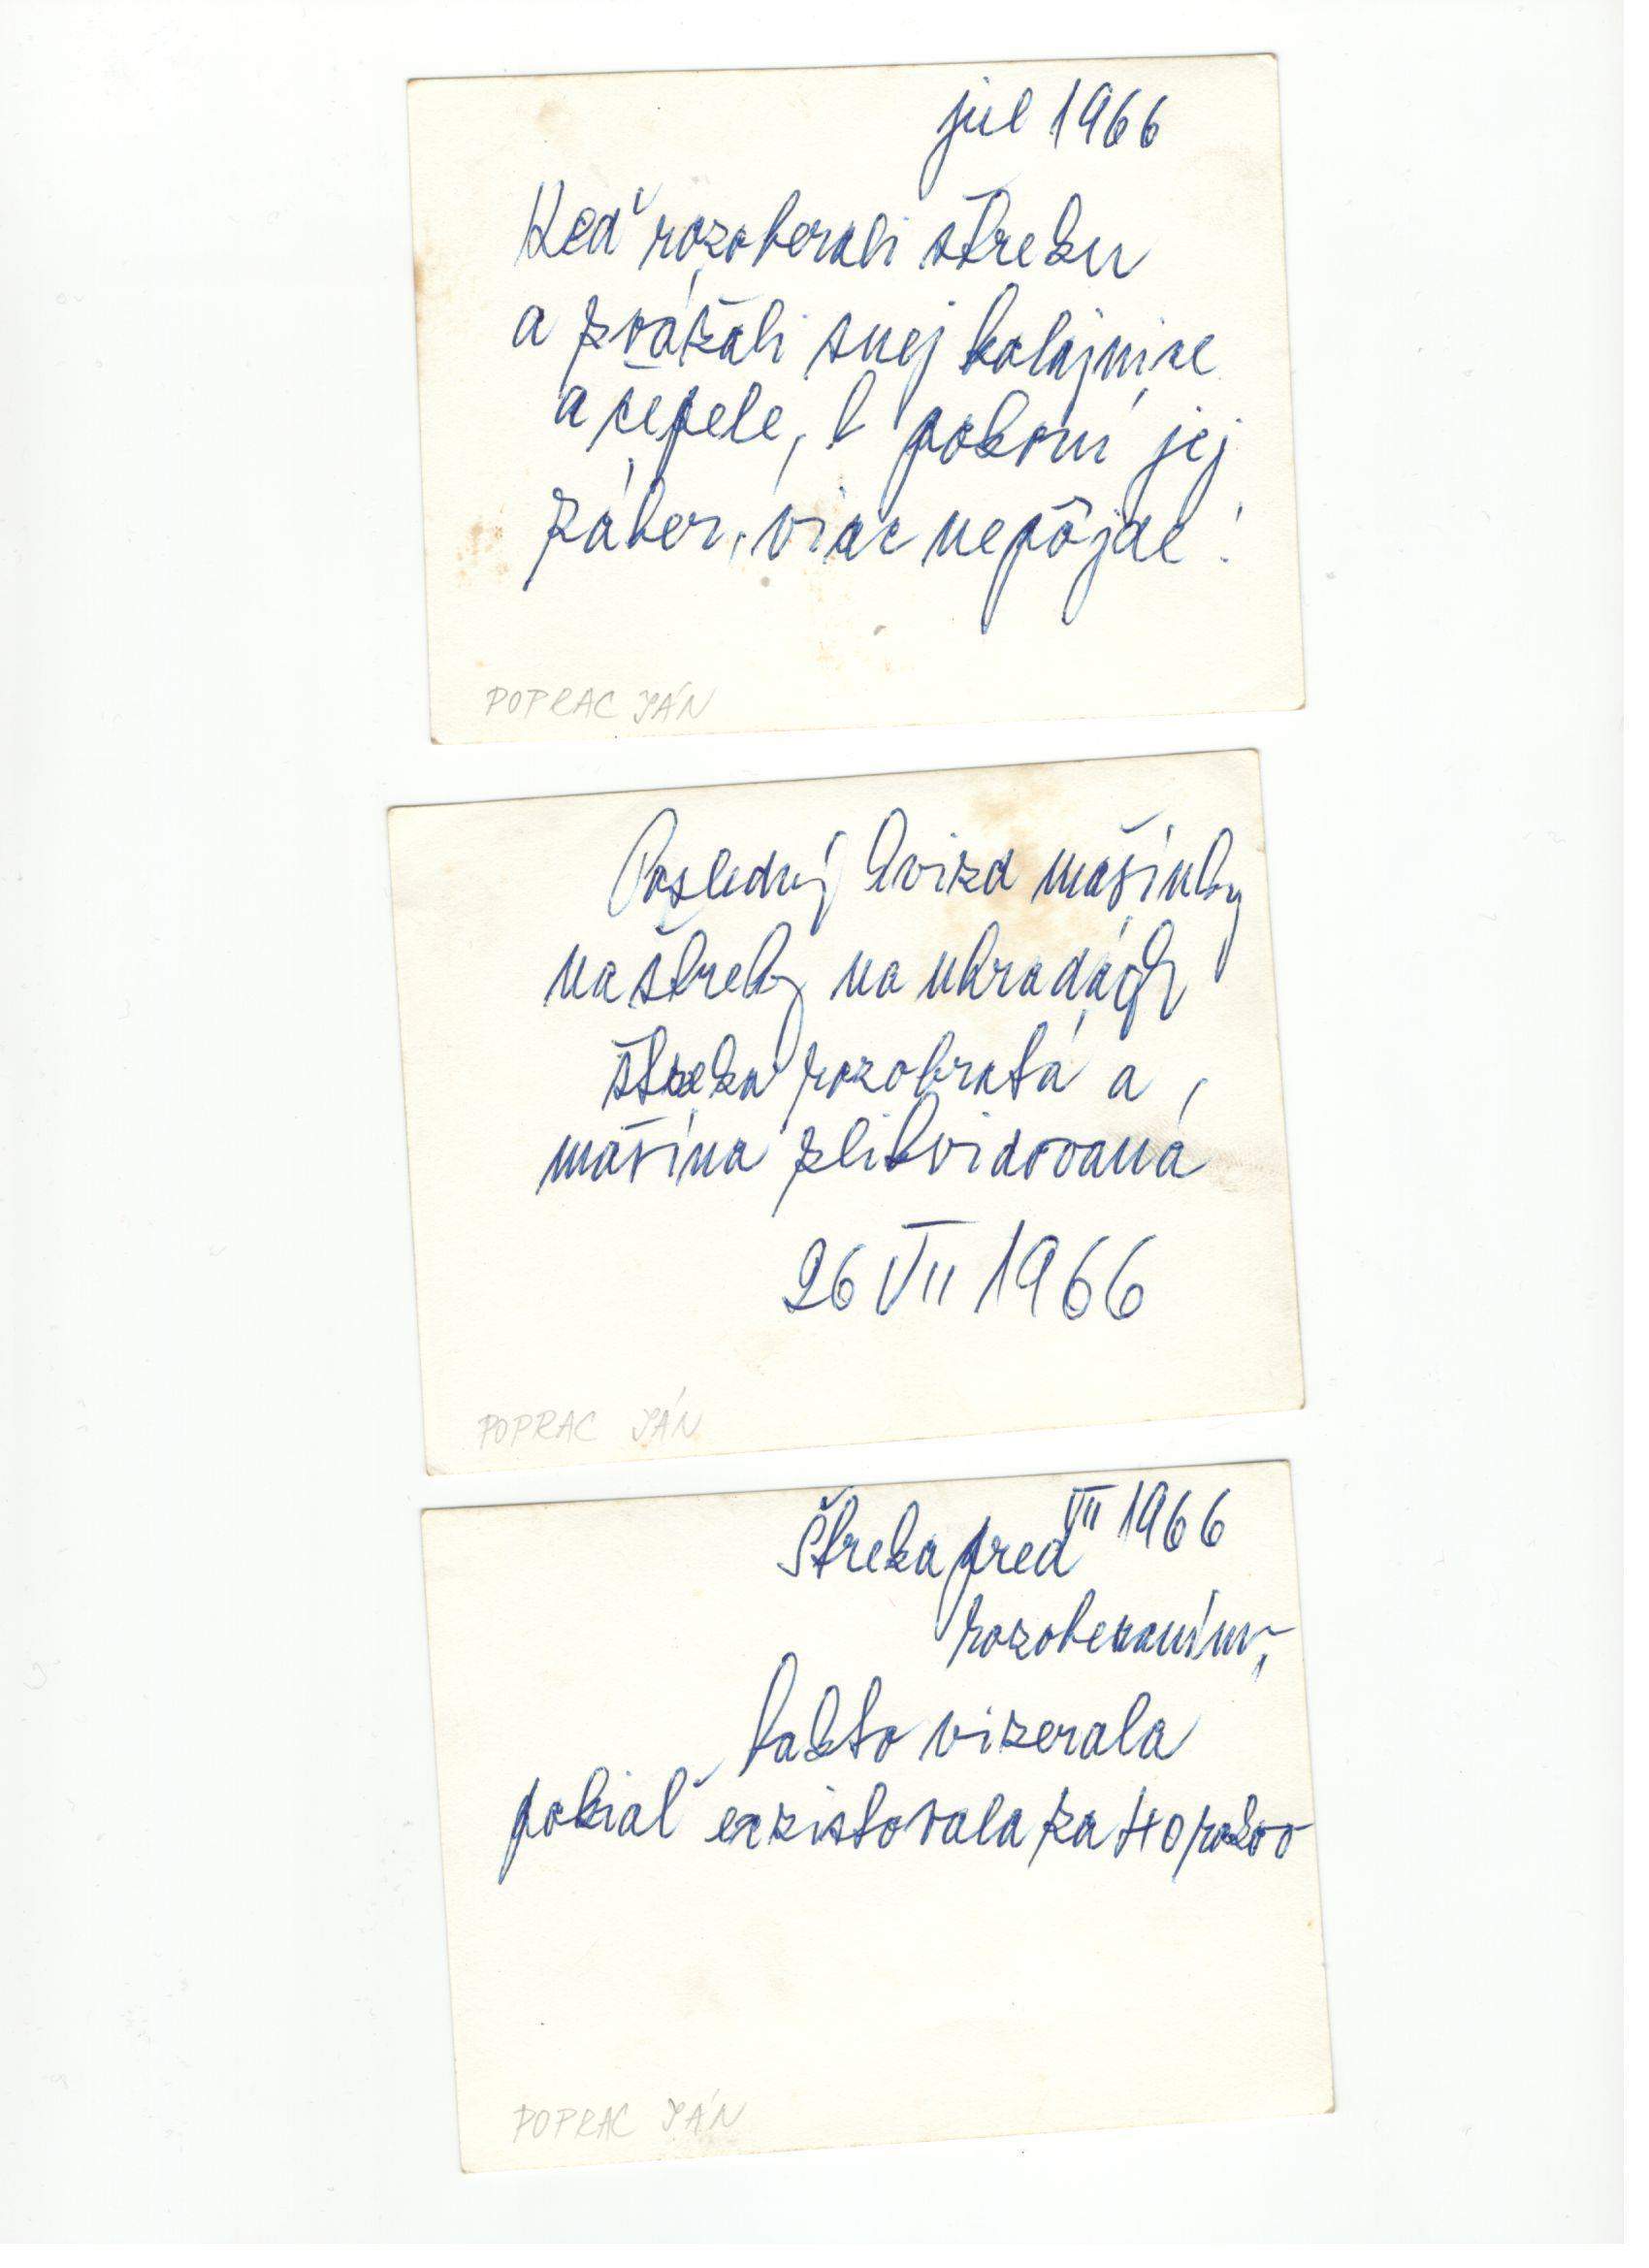 júl 1966
Keď rozoberali štreku
a zvážali snej kolajnice
a čepele,
záber, viac nepôjde!
POPRAC JÁN
Posledný hvizd mašinky
na štreky na uhradách
štreka rozobratá a
mašina zlikvidovaná
26 VII 1966
POPRAC JÁN
VII 1966
Štreka pred
rozoberaním,
takto vizerala
pokiaľ exzistovala za
POPRAC JÁN